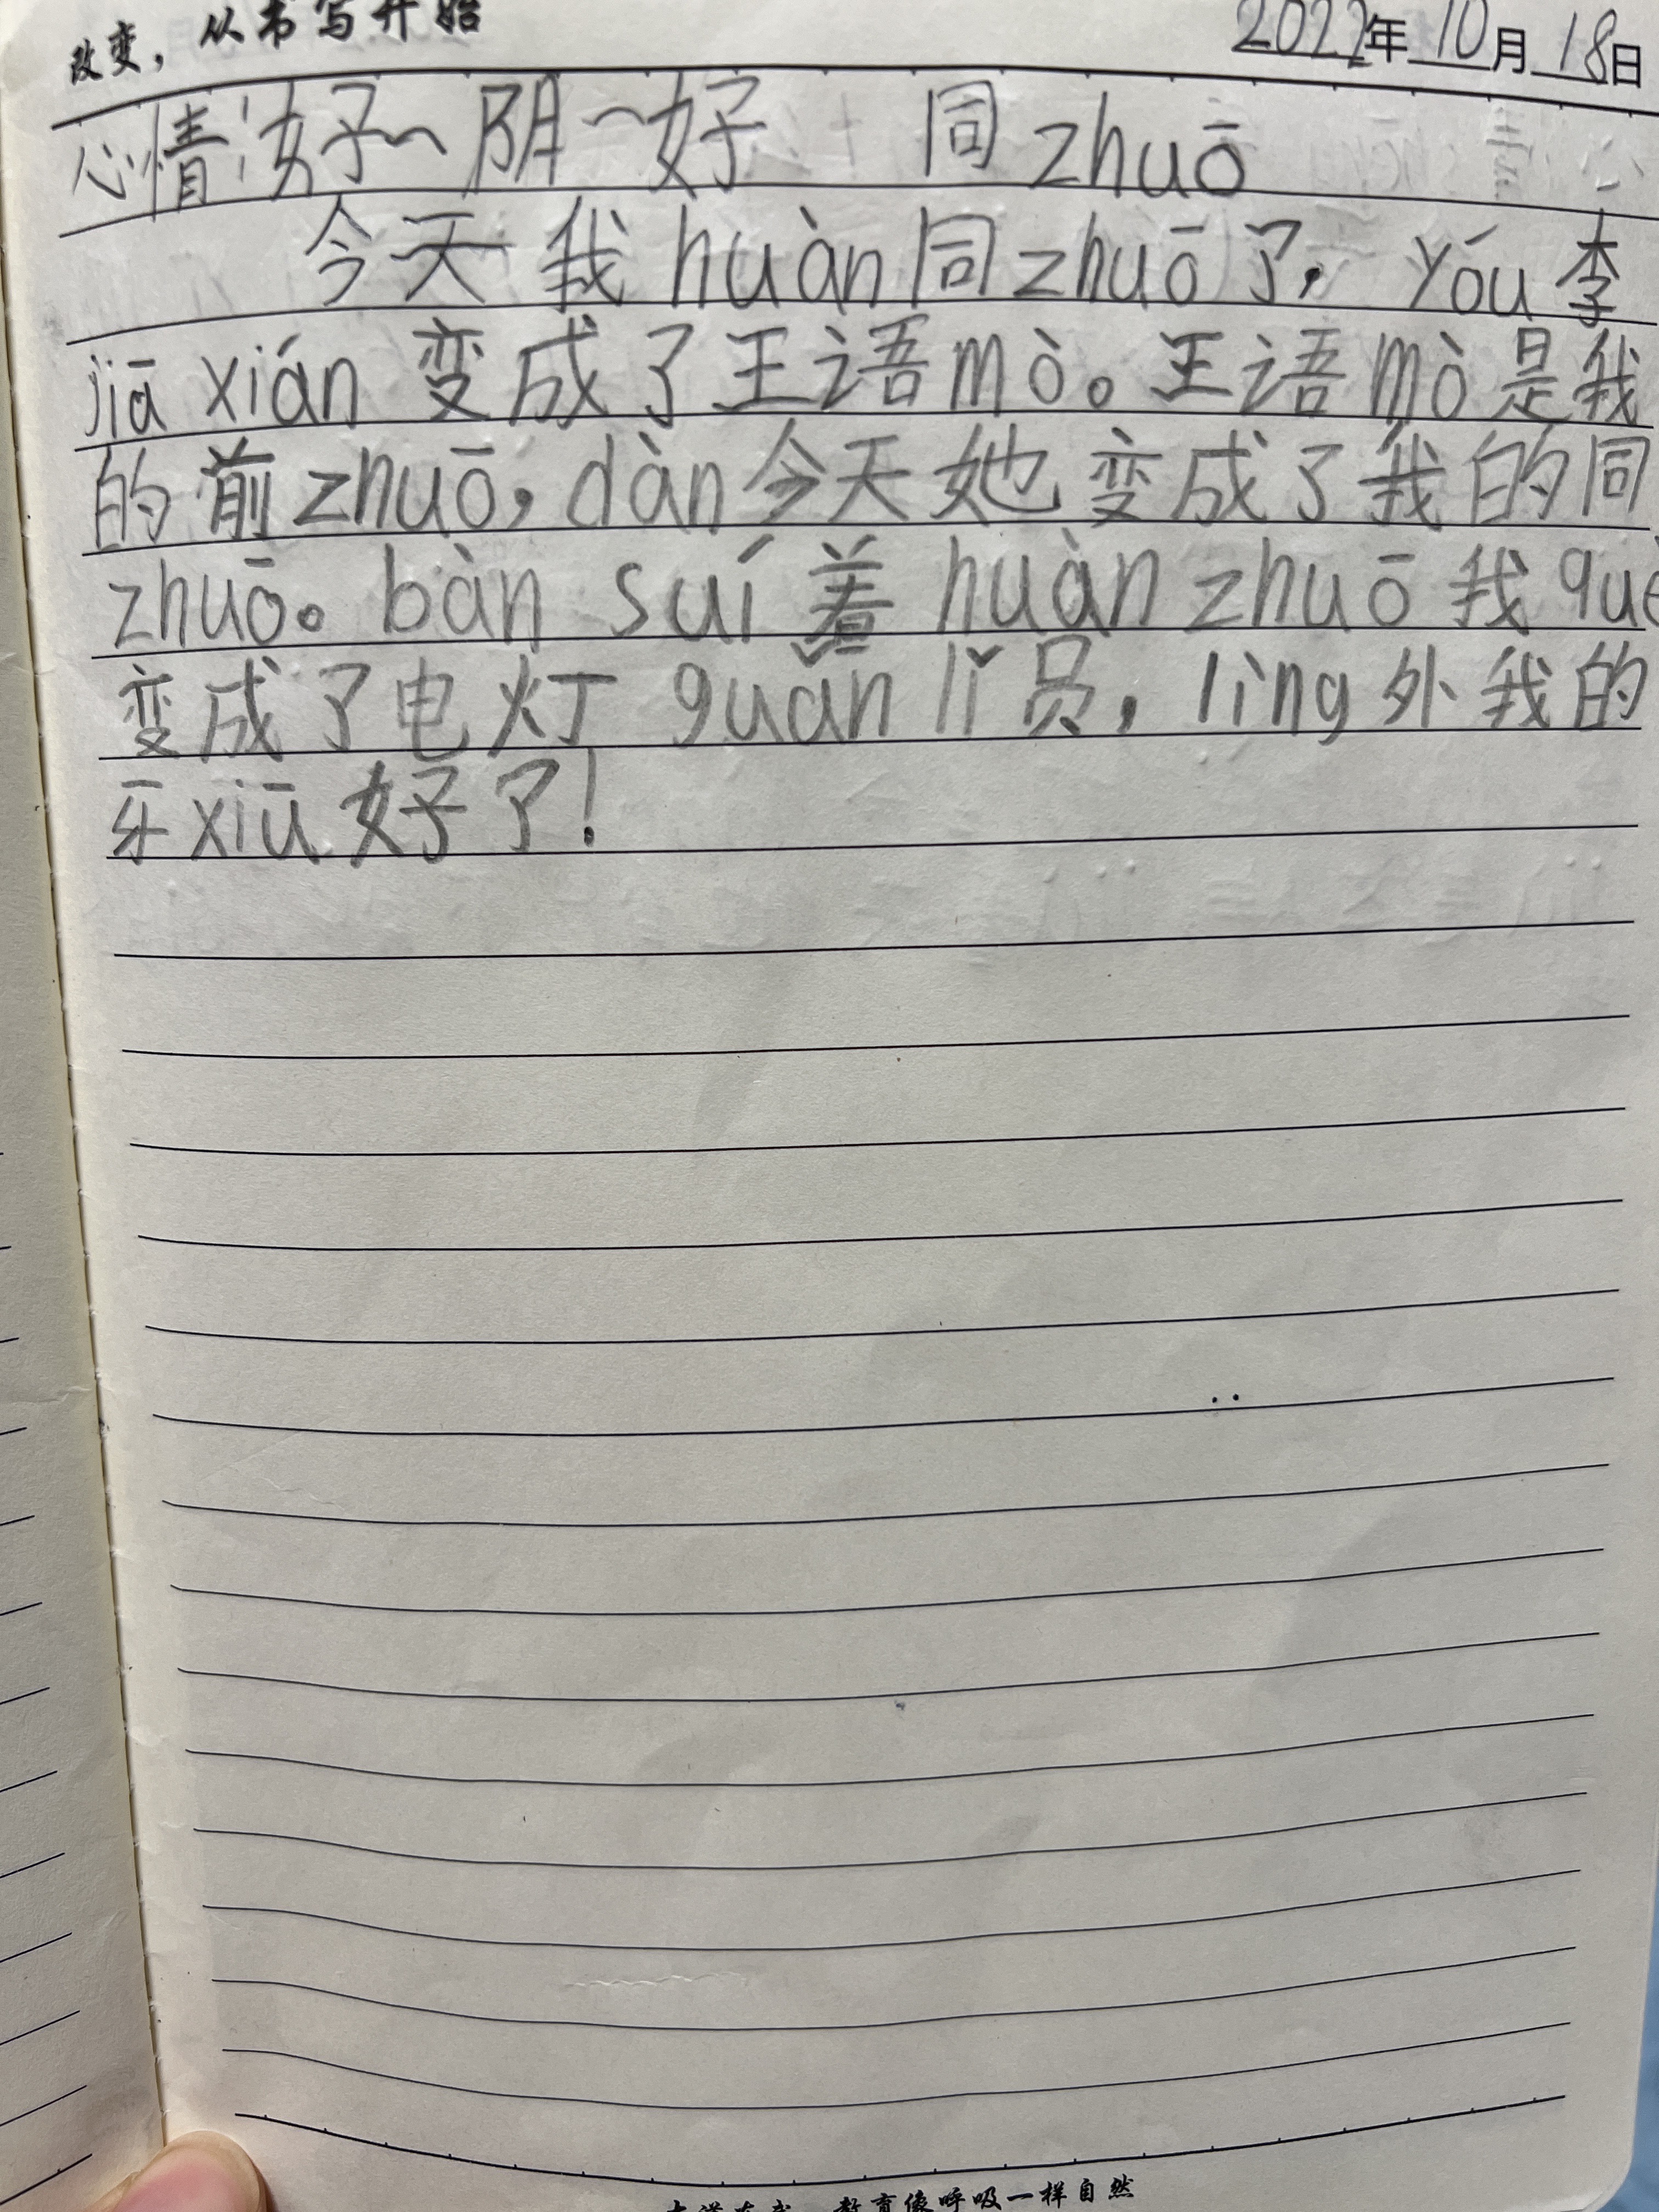 改变，从书写开始
2022年10月18日
心情：好~阴~好 同zhuō
今天我huàn同zhuō了，yóu李
jiā xián变成了王语mò。王语mò是我
的前zhuō，dàn今天她变成了我的同
zhuō。bàn suí着huàn zhuō我què
变成了电灯guǎn lǐ员，lìng外我的
牙xiū好了！
教育像呼吸一样自然